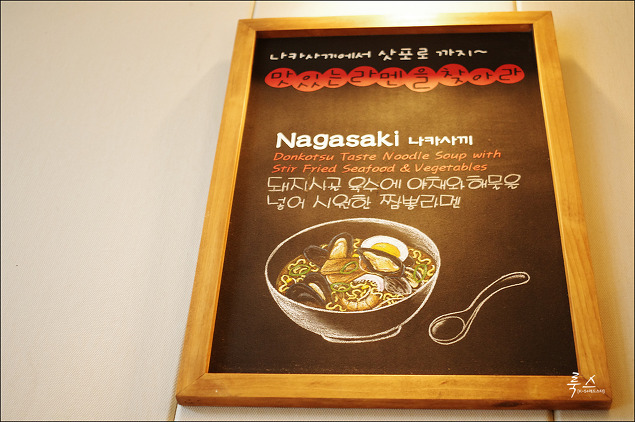 나카사끼에서 삿포로 까지~
맛있는라멘을찾아라
Nagasaki 나카사끼
Donkotsu Taste Noodle Soup with
Stir Fried Seafood & Vegetables
돼지사골 육수에 야채와 해물을
넣어 시원한 짬뽕라멘
룩스